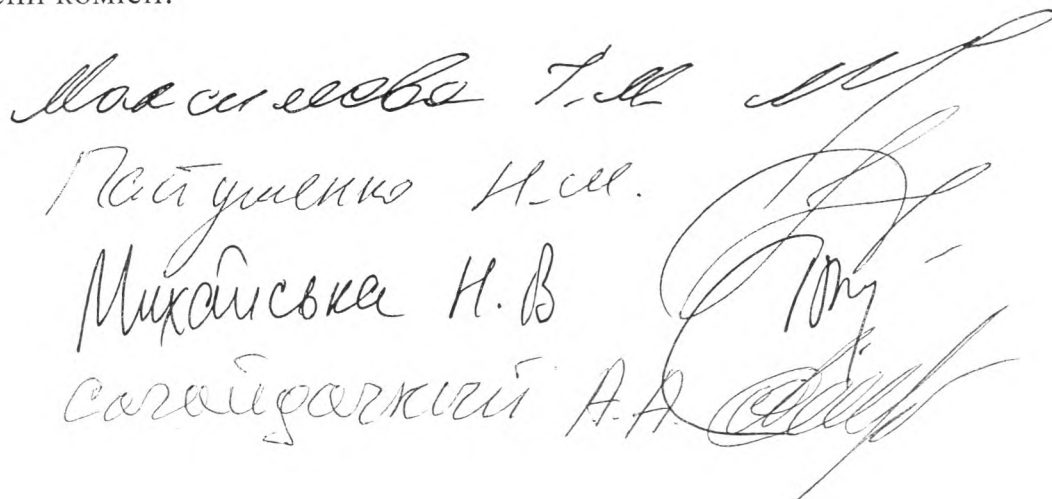 комісії:
Максимова Т.М
Патушенко Н.М.
Михайська Н.В
Сагайдачний А.А.